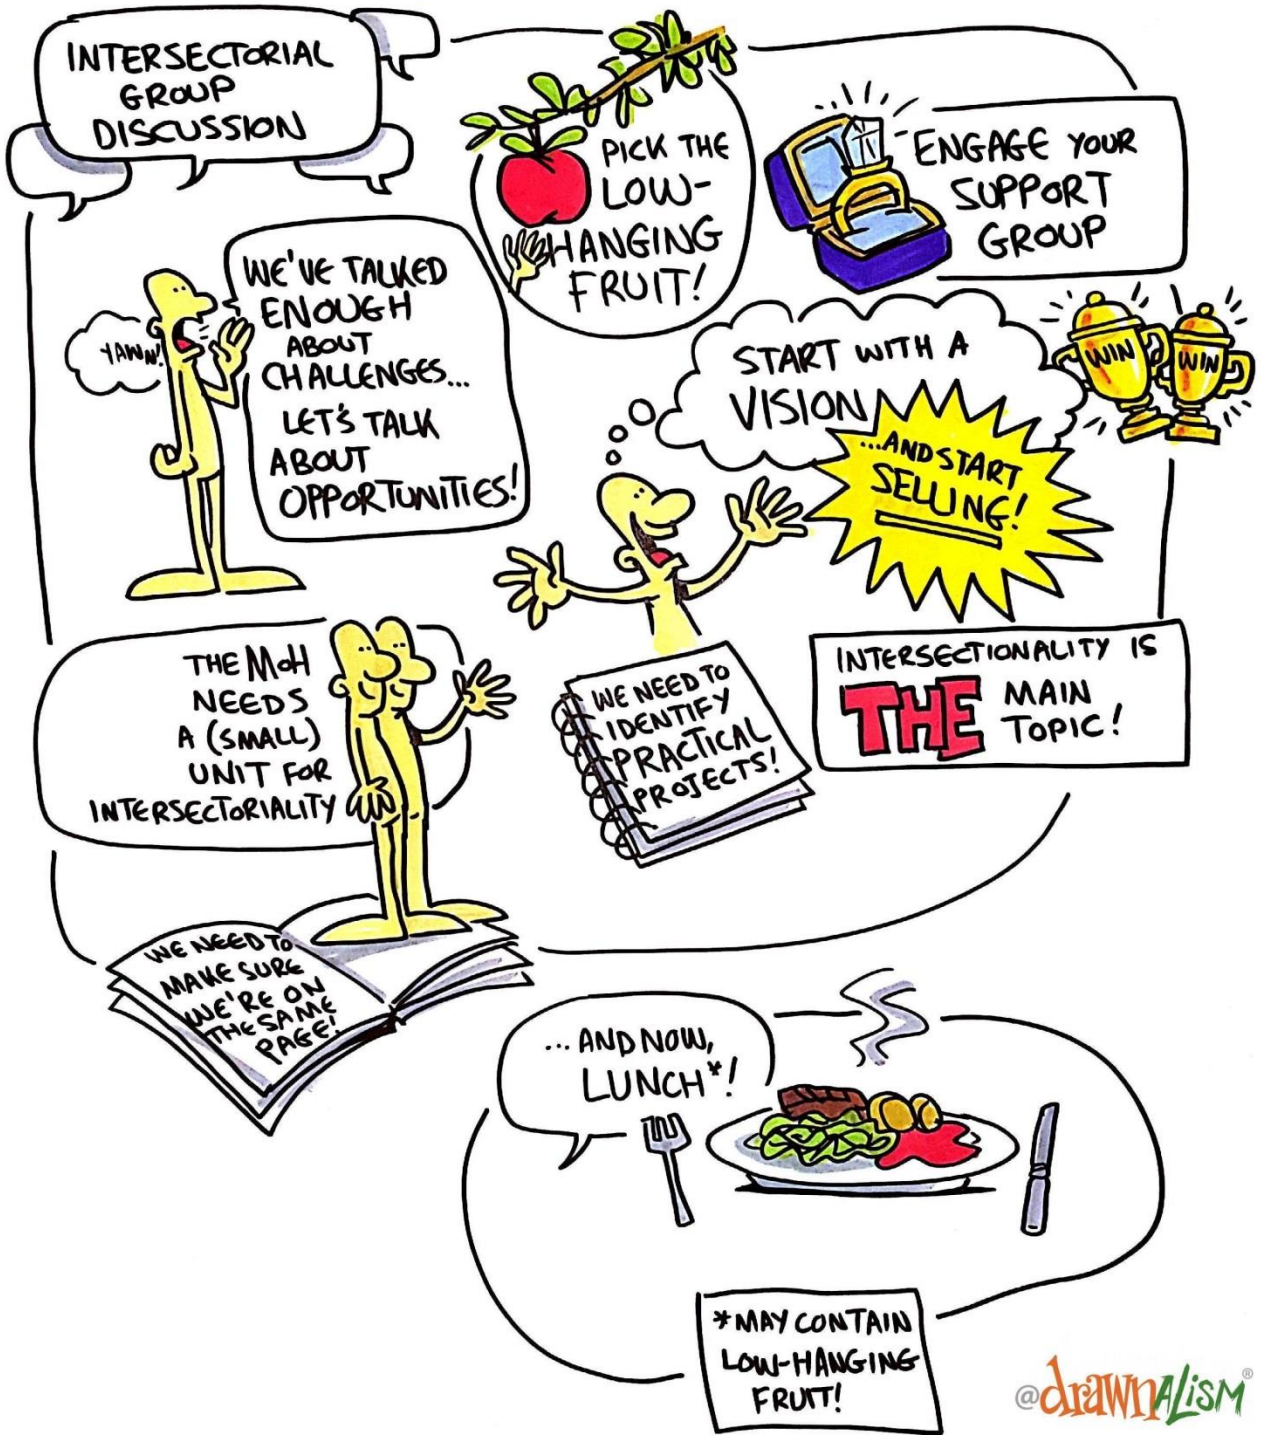 INTERSECTORIAL
GROUP
DISCUSSION
PICK THE
LOW-
HANGING
FRUIT!
ENGAGE YOUR
SUPPORT
GROUP
YAWN!
WE'VE TALKED
ENOUGH
ABOUT
CHALLENGES...
LET'S TALK
ABOUT
OPPORTUNITIES!
START WITH A
VISION
...AND START
SELLING!
WIN
WIN
THE MoH
NEEDS
A (SMALL)
UNIT FOR
INTERSECTORIALITY
WE NEED TO
IDENTIFY
PRACTICAL
PROJECTS!
INTERSECTIONALITY IS
THE MAIN
TOPIC!
WE NEED TO
MAKE SURE
WE'RE ON
THE SAME
PAGE!
...AND NOW,
LUNCH*!
*MAY CONTAIN
LOW-HANGING
FRUIT!
@drawnALiSM®